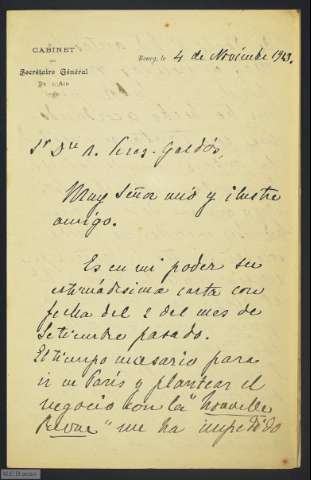 CABINET
DU
Secrétaire Général
DE L'AIN
Bourg, le 4 de Noviembre 19
Sr Dn B. Perez-Galdós,
Muy Señor mio y ilustre
amigo.
Es en mi poder su
estimadisima carta con
fecha del 2 del mes de
Setiembre pasado.
El tiempo necesario para
ir en Paris y plantear el
negocio con la "Nouvelle
Revue" me ha impedido